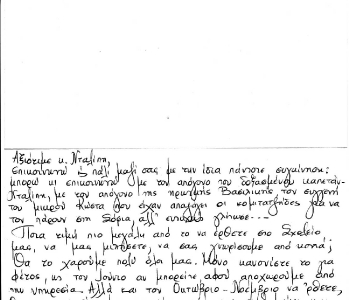 Αξιότιμε κ. Νταλίπη,
Επικοινωνώ πάλι μαζί σας με την ίδια πάντοτε συγκίνηση:
μπορώ κι επικοινωνώ με τον απόγονο του δοξασμένου καπετάν-
Νταλίπη, με τον απόγονο της ηρωικής Βασιλικής, τον συγγενή
του μικρού Κώστα που είχαν απαγάγει οι κομιτατζήδες για να
τον πάρουν στη Σόφια, αλλ' ευτυχώς γλίτωσε...
Ποια τιμή πιο μεγάλη από το να έρθετε στο Σχολείο
μας, να μας μιλήσετε, να σας γνωρίσουμε από κοντά;
Θα το χαρούμε πολύ όλοι μας. Μόνο κανονίστε το για
φέτος, ως τον Ιούνιο αν μπορείτε αφού αποχωρούμε από
την υπηρεσία. Αλλά και τον Οκτώβριο - Νοέμβριο να έρθετε,